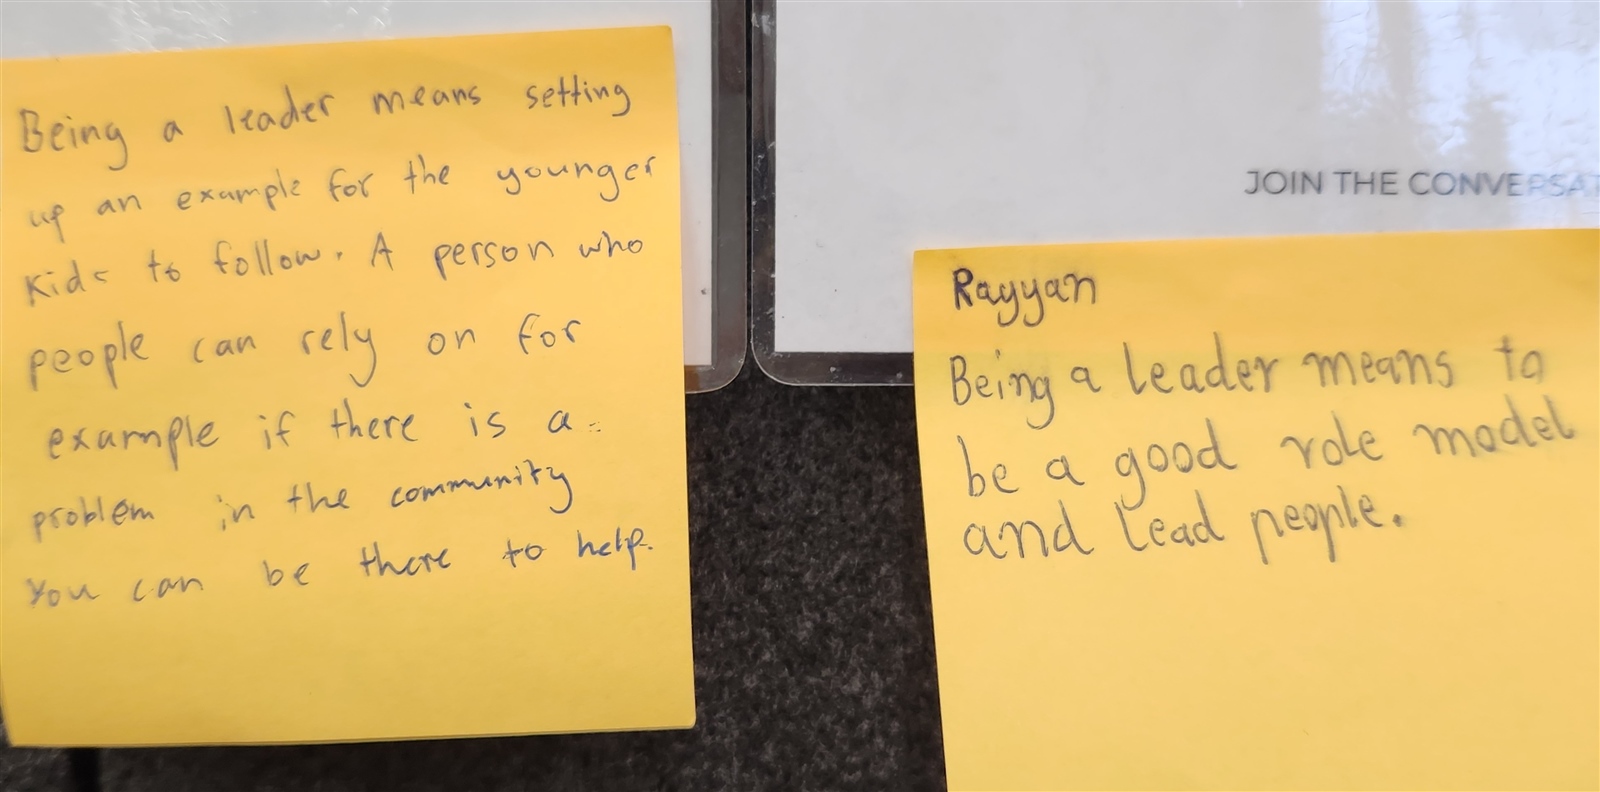 Being a leader means setting
up an example for the younger
kids to follow. A person who
people can rely on for
example if there is a
problem in the community
You can be there to help.
JOIN THE CONVERSAT
Rayyan
Being a leader means to
be a good role model
and lead people.